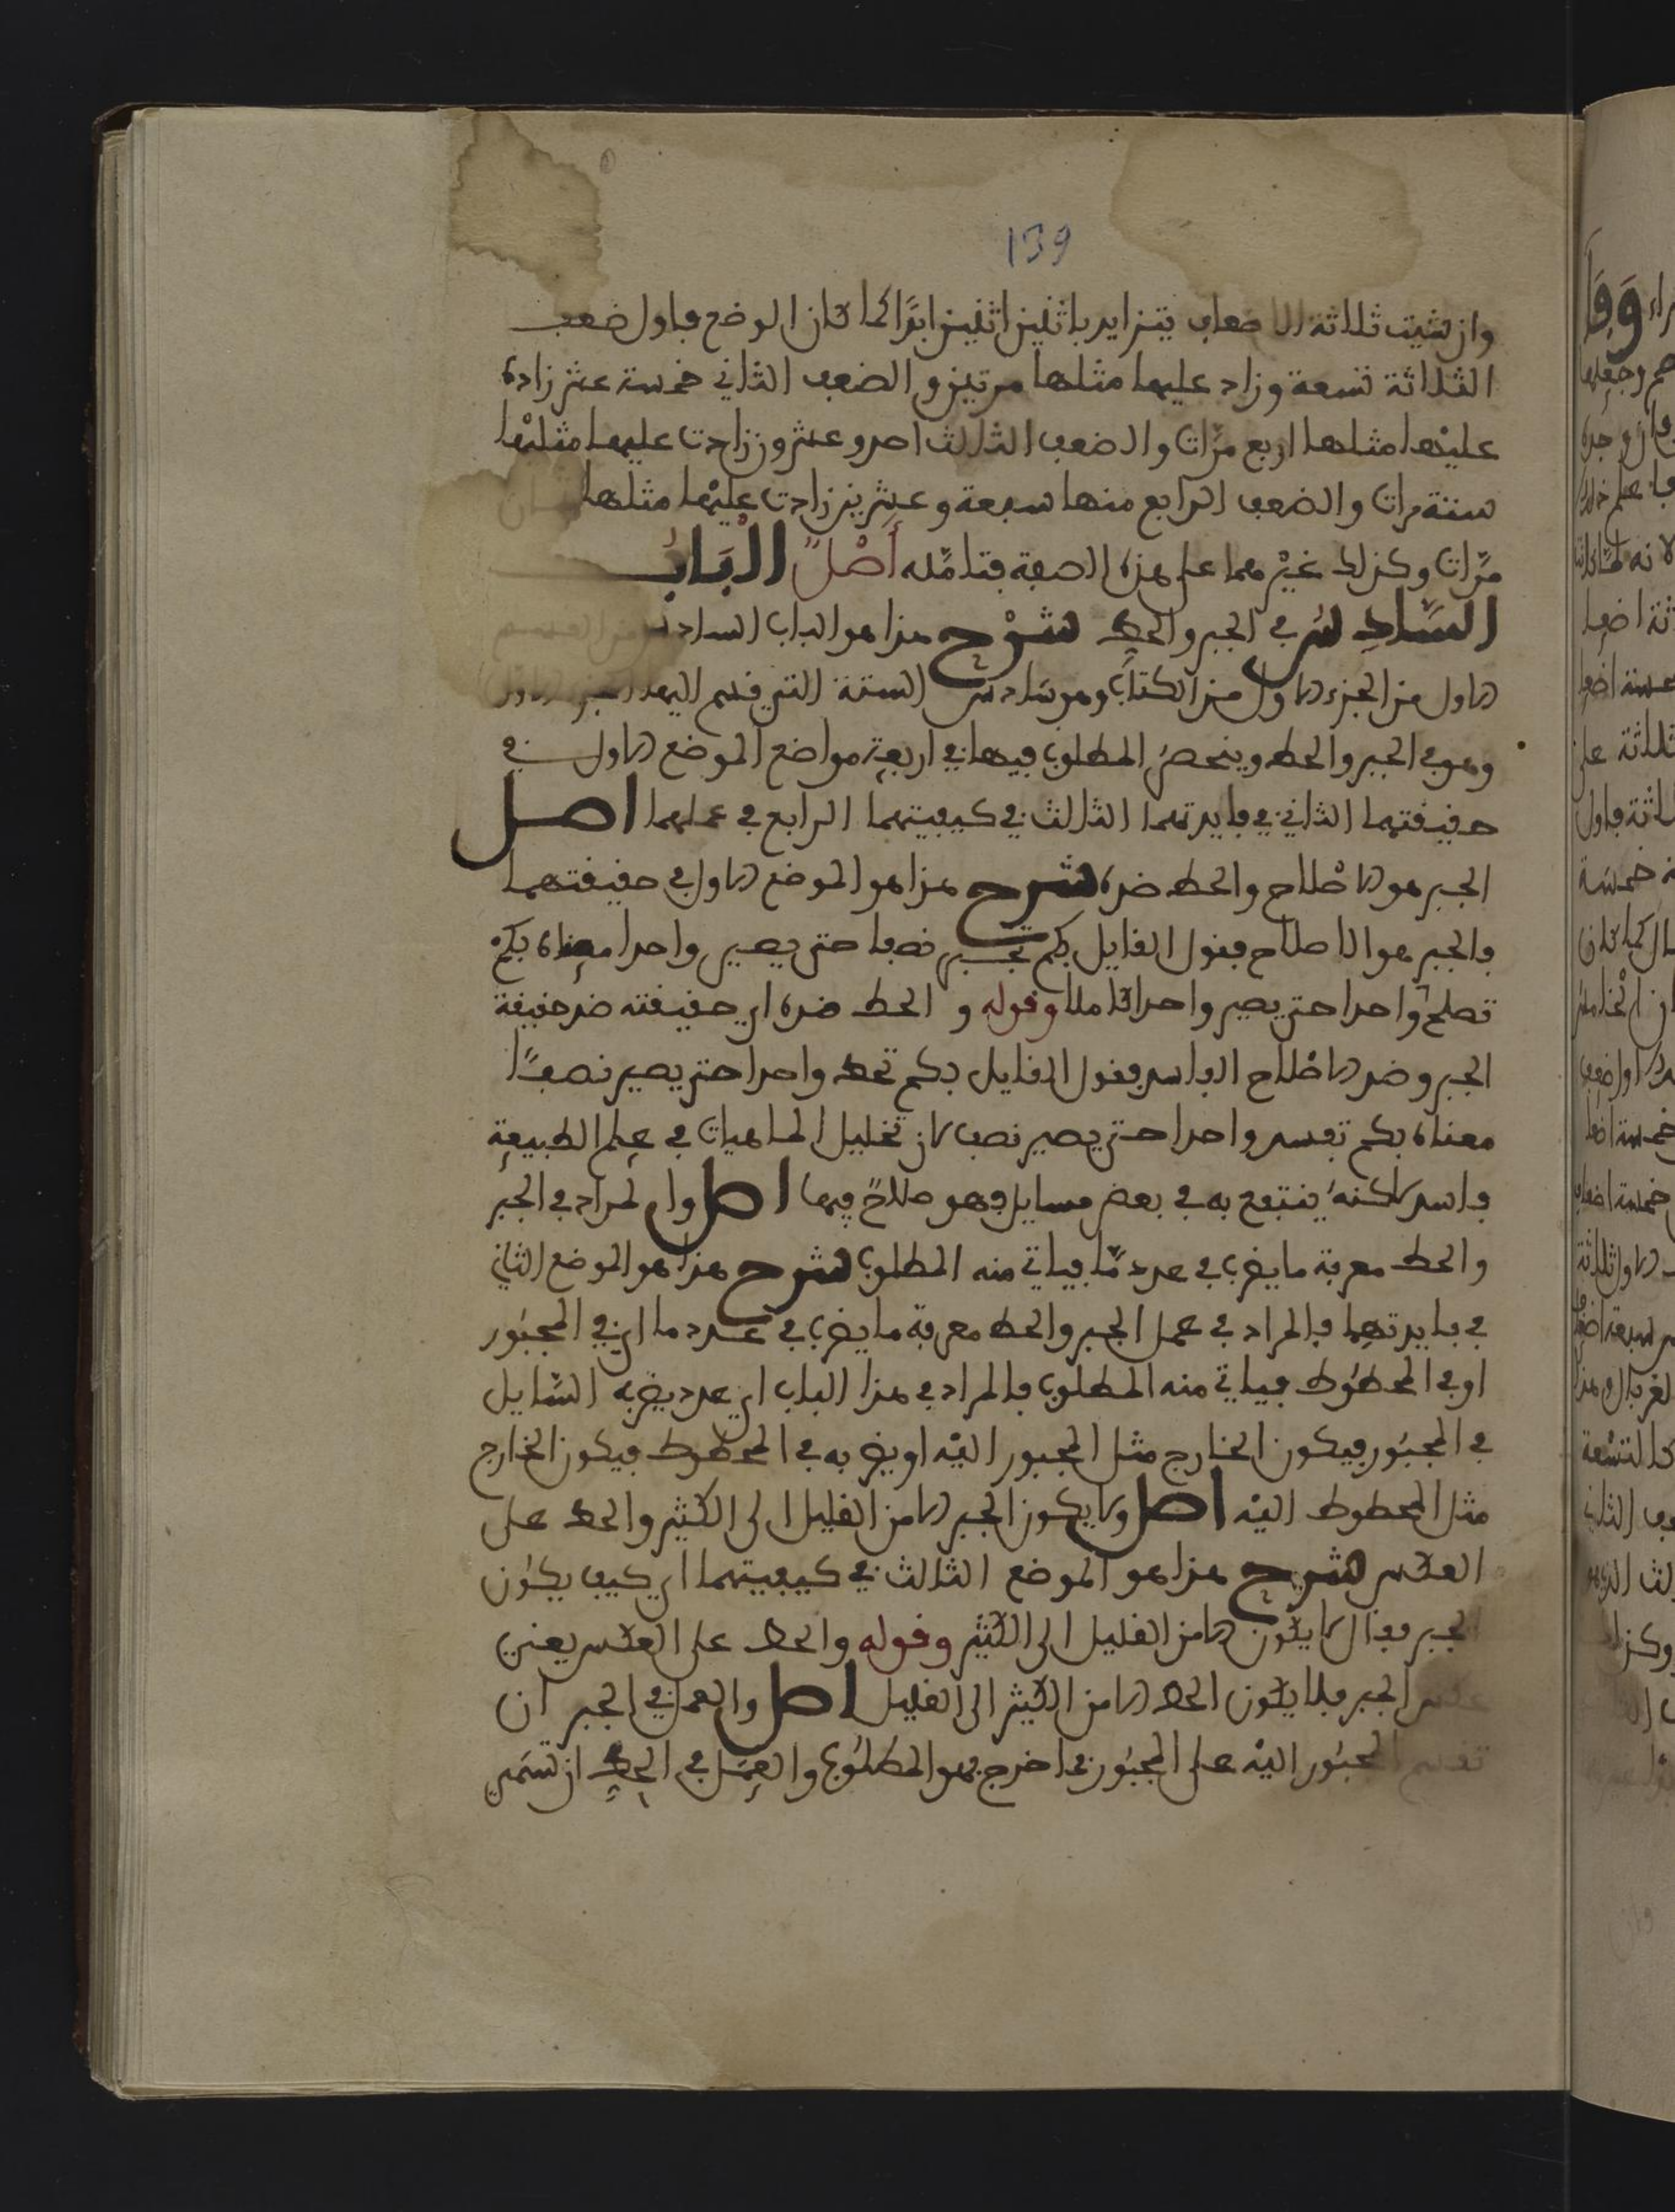 139
وان شيت ثلاثة الاضعاف يتزايد باثنين اثنين ابدا كما كان الوضع فاول ضعف
الثلاثة تسعة وزاد عليها مثلها مرتين والضعف الثاني خمسة عشر زاده
عليها مثلها اربع مرّات والضعف الثالث احد وعشرون زادت عليها مثليْها
ستة مرات والضعف الرابع منها سبعة وعشرين زادت عليْها مثلها ثمان
مرّات وكذلك غيْرهما على هذه الصفة فتامّله أصْلٌ الْبَابُ
السَّادِسُ في الجبر والحطِّ شرْح هذا هو الباب السادس من القسم
الاول من الجزء الاول من الكتاب وهو سادس الستة التي قسم اليها الجزء الاول
وهو في الجبر والحط وينحصر المطلوب فيها في اربعة مواضع الموضع الاول في
حقيقتهما الثاني في فايدتهما الثالث في كيفيتهما الرابع في عملهما اصل
الجبر هو الاصْلاح والحط ضده شرح هذا هو الموضع الاول في حقيقتهما
فالجبر هو الاصلاح فقول القايل بكم تجبر نصفا حتى يصير واحدا معناه بكمْ
تصلح واحدا حتى يصير واحدا كاملا وقوله و الحط ضده اي حقيقته ضد حقيقة
الجبر وضد الاصْلاح الفاسد فقول القايل بكم تحط واحدا حتى يصير نصفًا
معناه بكم تفسد واحدا حتى يصير نصف لان تحليل الماهيات في علم الطبيعة
فاسد لاكنه ينتفع به في بعض مسايل وهو صلاحٌ فيها اصل والمراد في الجبر
والحط معرفة ما يضرب في عدد مّا فياتي منه المطلوب شرح هذا هو الموضع الثاني
في فايدتهما فالمراد في عمل الجبر والحط معرفة ما يضرب في عدد ما اي في المجبُور
او في المحطوط فياتي منه المطلوب فالمراد في هذا الباب اي عدد يضربه السّايل
في المجبُور فيكون الخارج مثل المجبور اليْه او يضربه في المحطوط فيكون الخارج
مثل المحطوط اليْه اصل ولا يكون الجبر الا من القليل الى الكثير والحط على
العكس شرح هذا هو الموضع الثالث في كيفيتهما اي كيف يكون
الجبر فقال لا يكون الا من القليل الى الكثير وقوله والحط على العكس يعني
عكس الجبر فلا يكون الحط الا من الكثير الى القليل اصل والعمل في الجبر ان
تقسم المجبُور اليْه على المجبُور فما خرج فهو المطلُوب والعمَل في الحطِّ ان تسَمّي